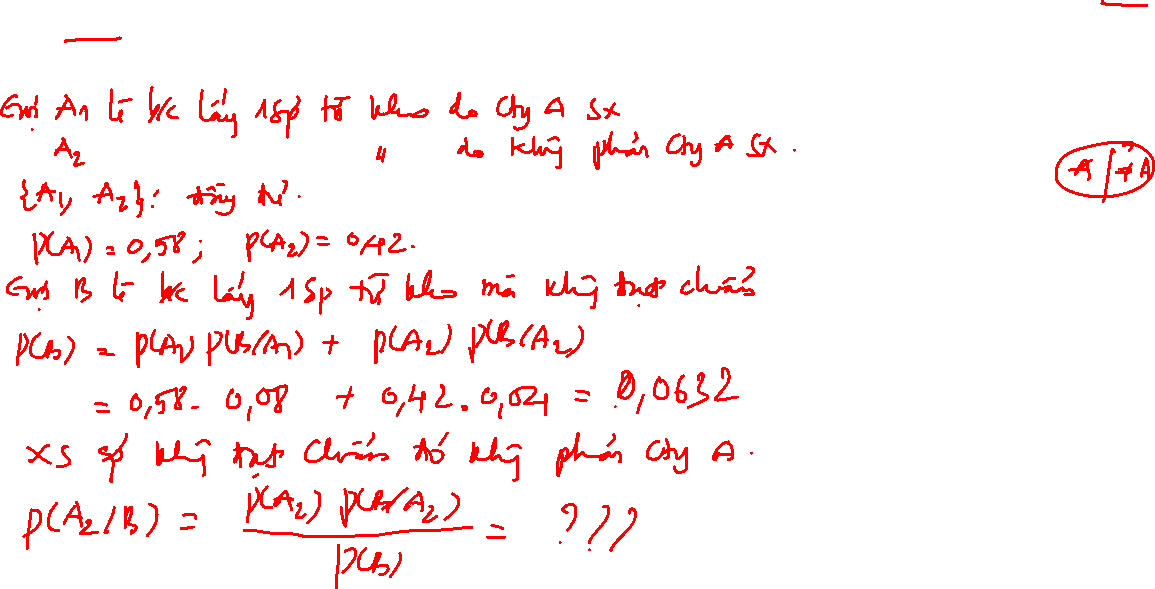 Gọi A1 là b/c lấy 1 sp từ kho do Cty A SX
A2 " do không phải Cty A SX.
A | ≠ A
{A1, A2}: đầy đủ.
P(A1) = 0,58; P(A2) = 0,42.
Gọi B là b/c lấy 1 sp từ kho mà không đạt chuẩn
P(B) = P(A1) P(B/A1) + P(A2) P(B/A2)
= 0,58. 0,08 + 0,42. 0,04 = 0,0632
XS sp không đạt chuẩn đó không phải Cty A.
P(A2/B) = P(A2) P(B/A2) = ???
P(B)